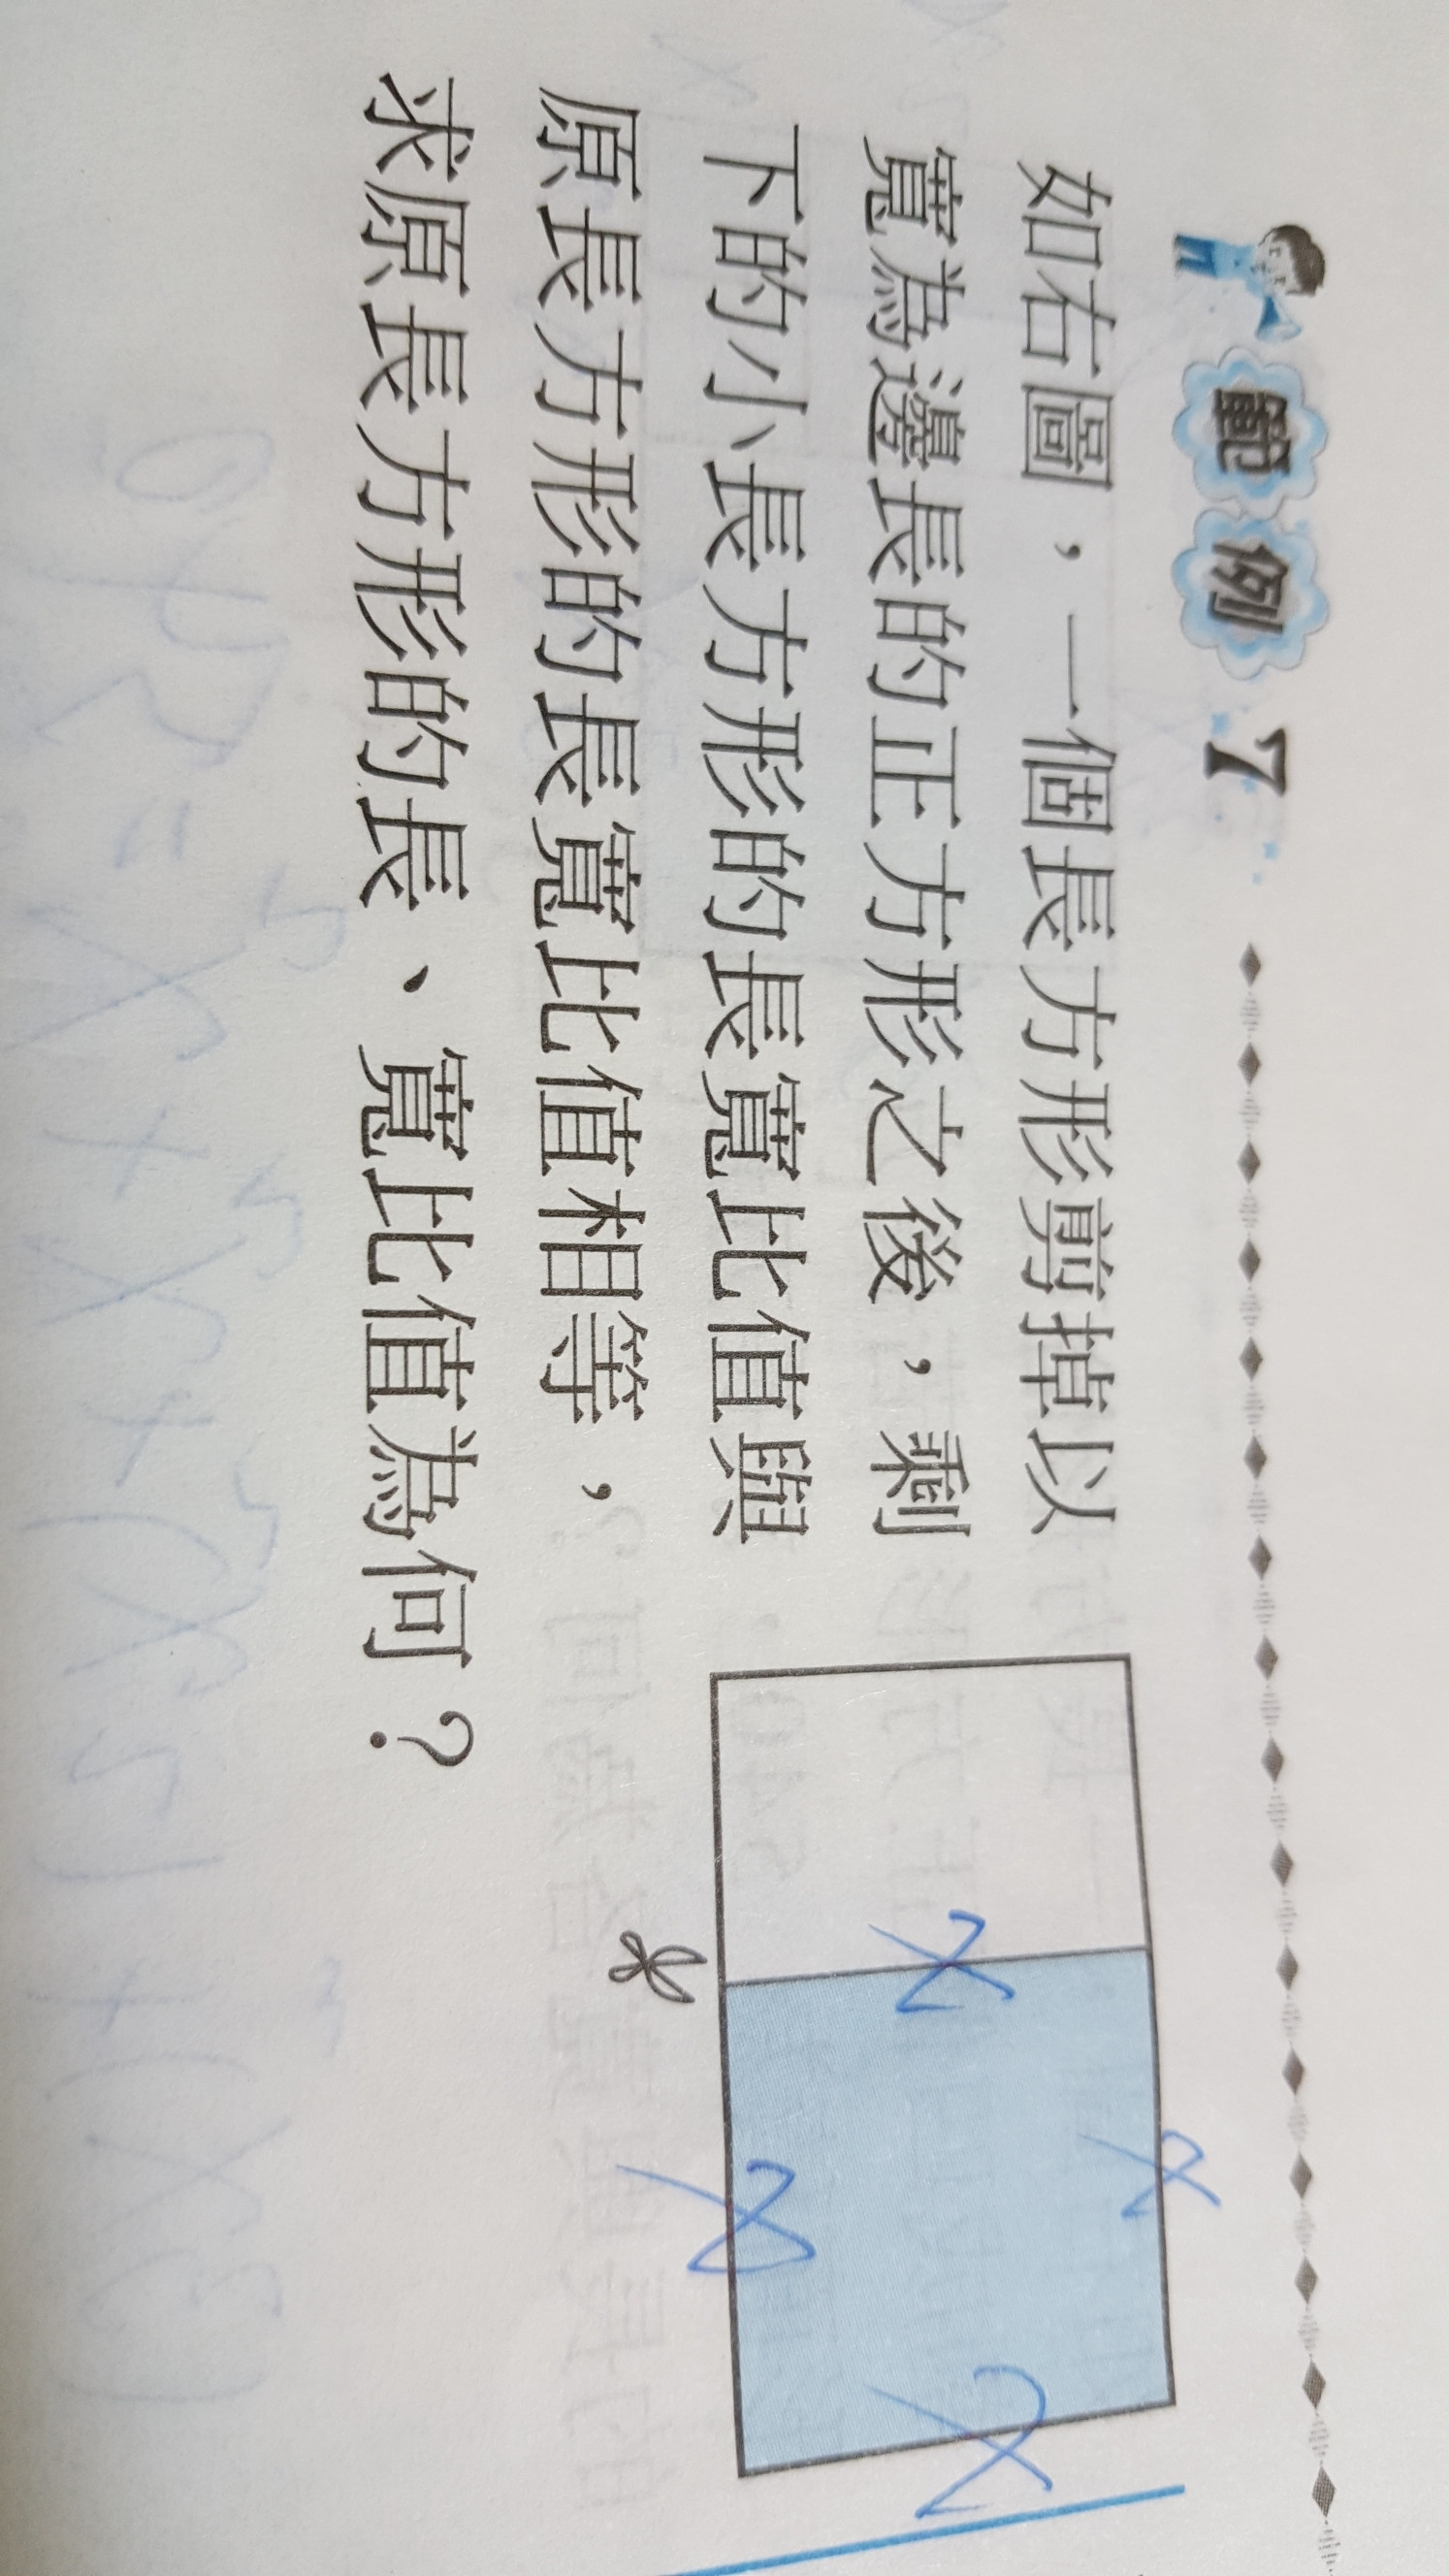 範例 7
如右圖，一個長方形剪掉以
寬為邊長的正方形之後，剩
下的小長方形的長寬比值與
原長方形的長寬比值相等，
求原長方形的長、寬比值為何？
x
x
x
x